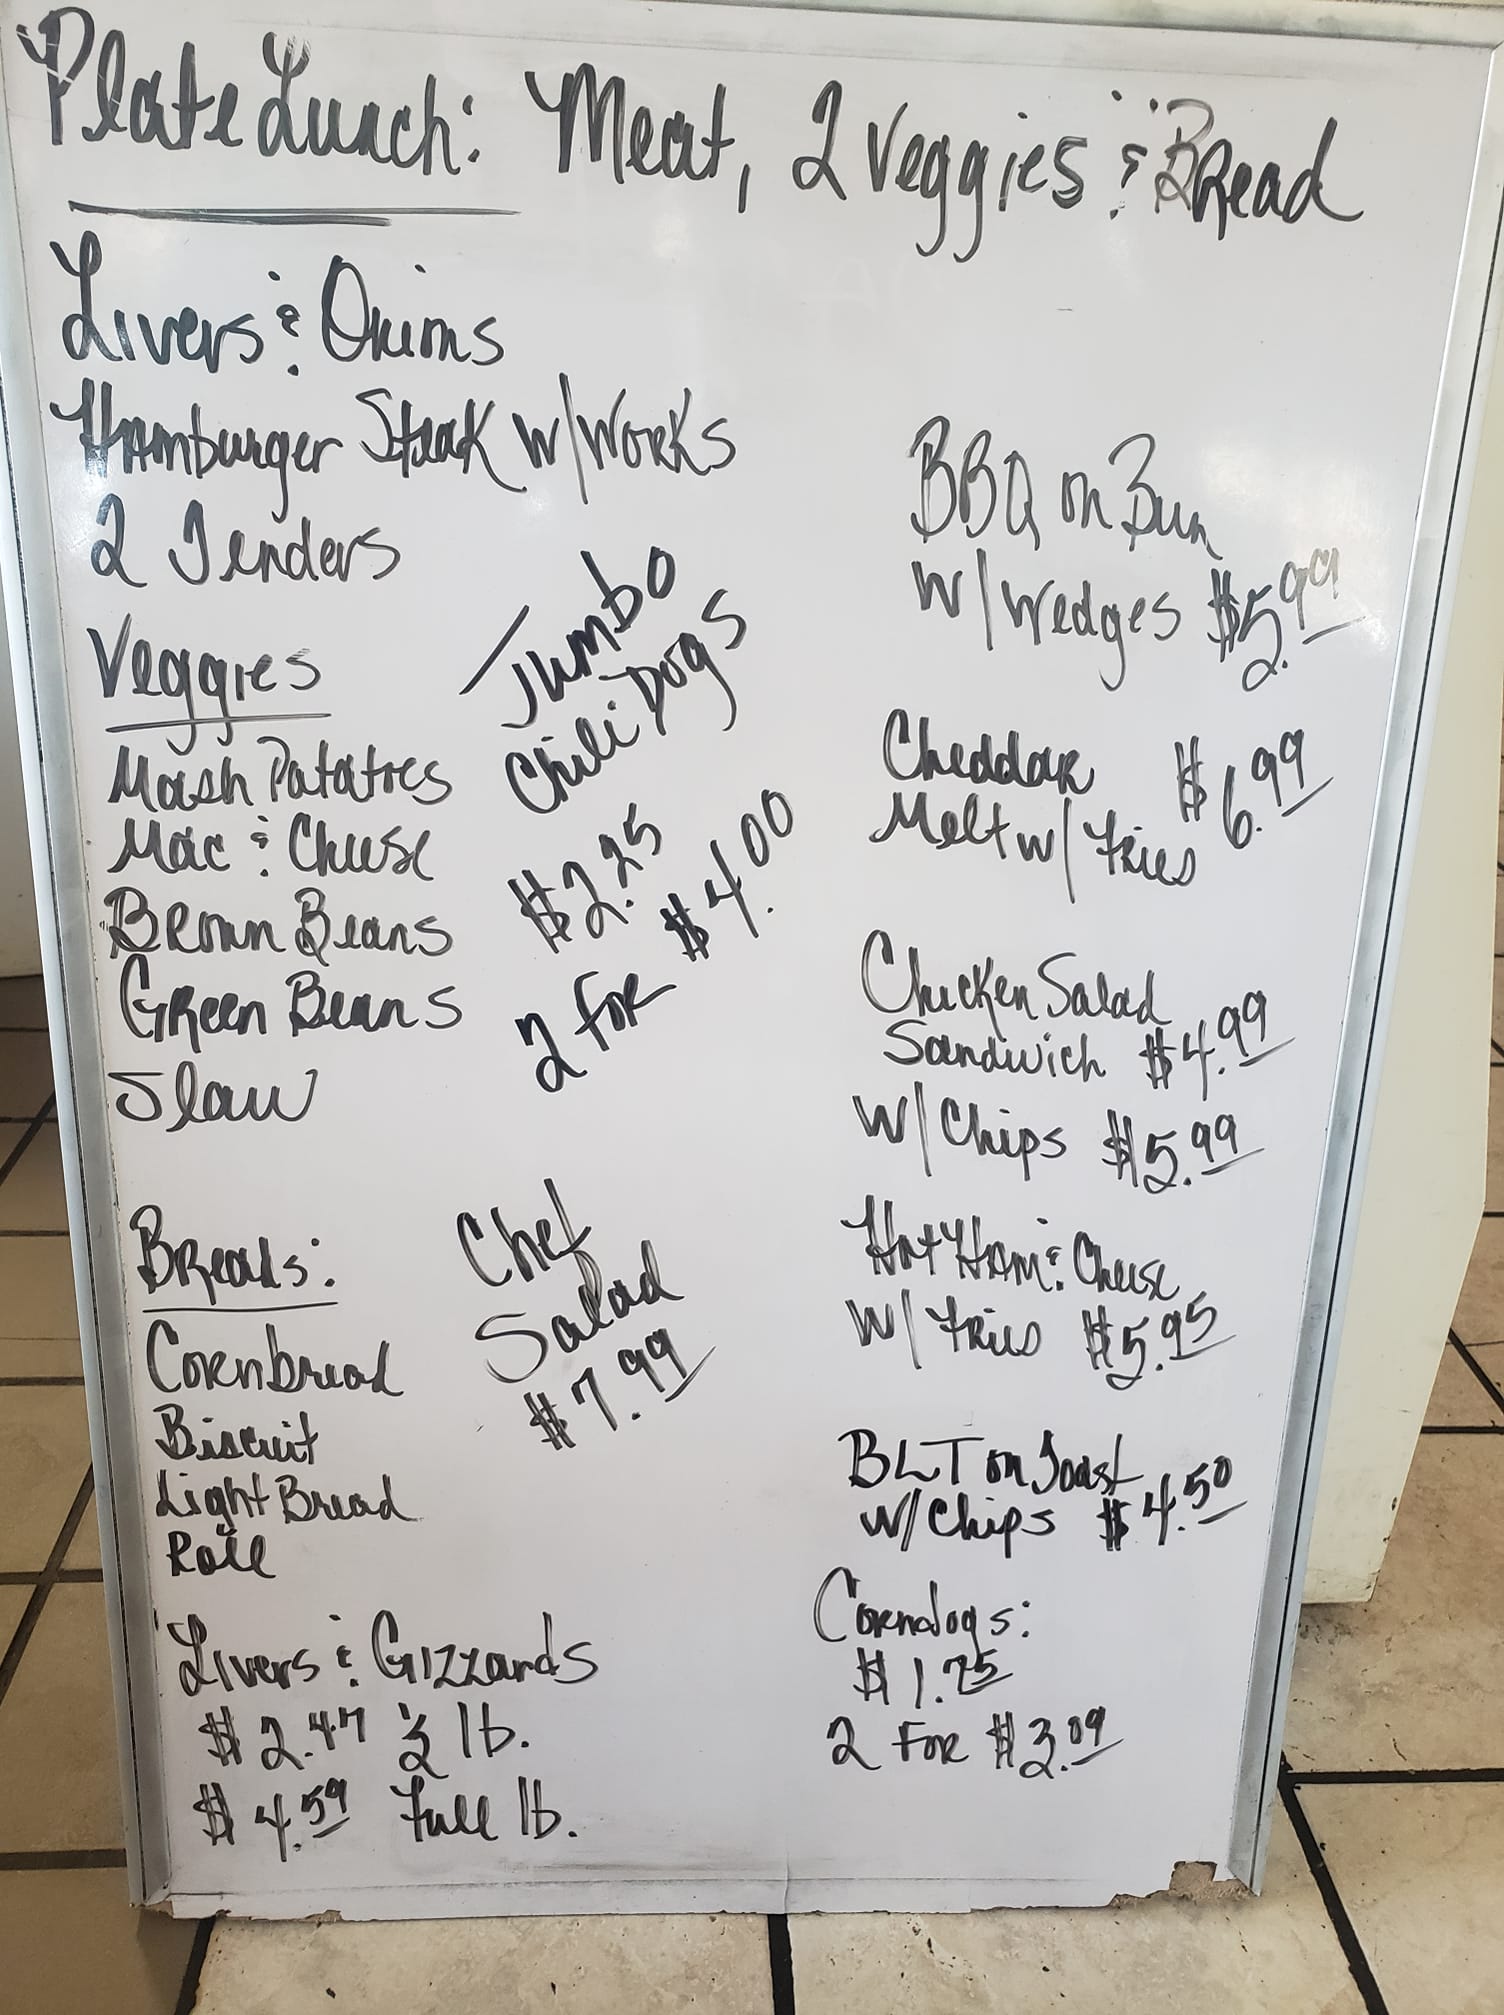 Plate Lunch: Meat, 2 Veggies & Bread
Livers & Onions
Hamburger Steak w/Works
2 Tenders
Veggies
Mash Patatoes
Mac & Cheese
Brown Beans
Green Beans
Slaw
Jumbo
Chili Dogs
$2.25
2 For $4.00
Breads:
Cornbread
Biscuit
Light Bread
Roll
Chef
Salad
$7.99
Livers & Gizzards
$2.47 1/2 lb.
$4.59 Full lb.
BBQ on Bun
w/Wedges $5.99
Cheddar $6.99
Melt w/ Fries
Chicken Salad
Sandwich $4.99
w/Chips $5.99
Hot Ham & Cheese
w/ Fries $5.95
BLT on Toast
w/Chips $4.50
Corndogs:
$1.75
2 For $3.09